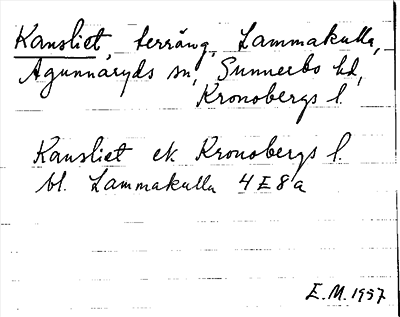 Kansliet, terräng, Lammakulla,
Agunnaryds sn, Sunnerbo hd,
Kronobergs l.
Kansliet ek Kronobergs l.
bl. Lammakulla 4E8a
E.M. 1957